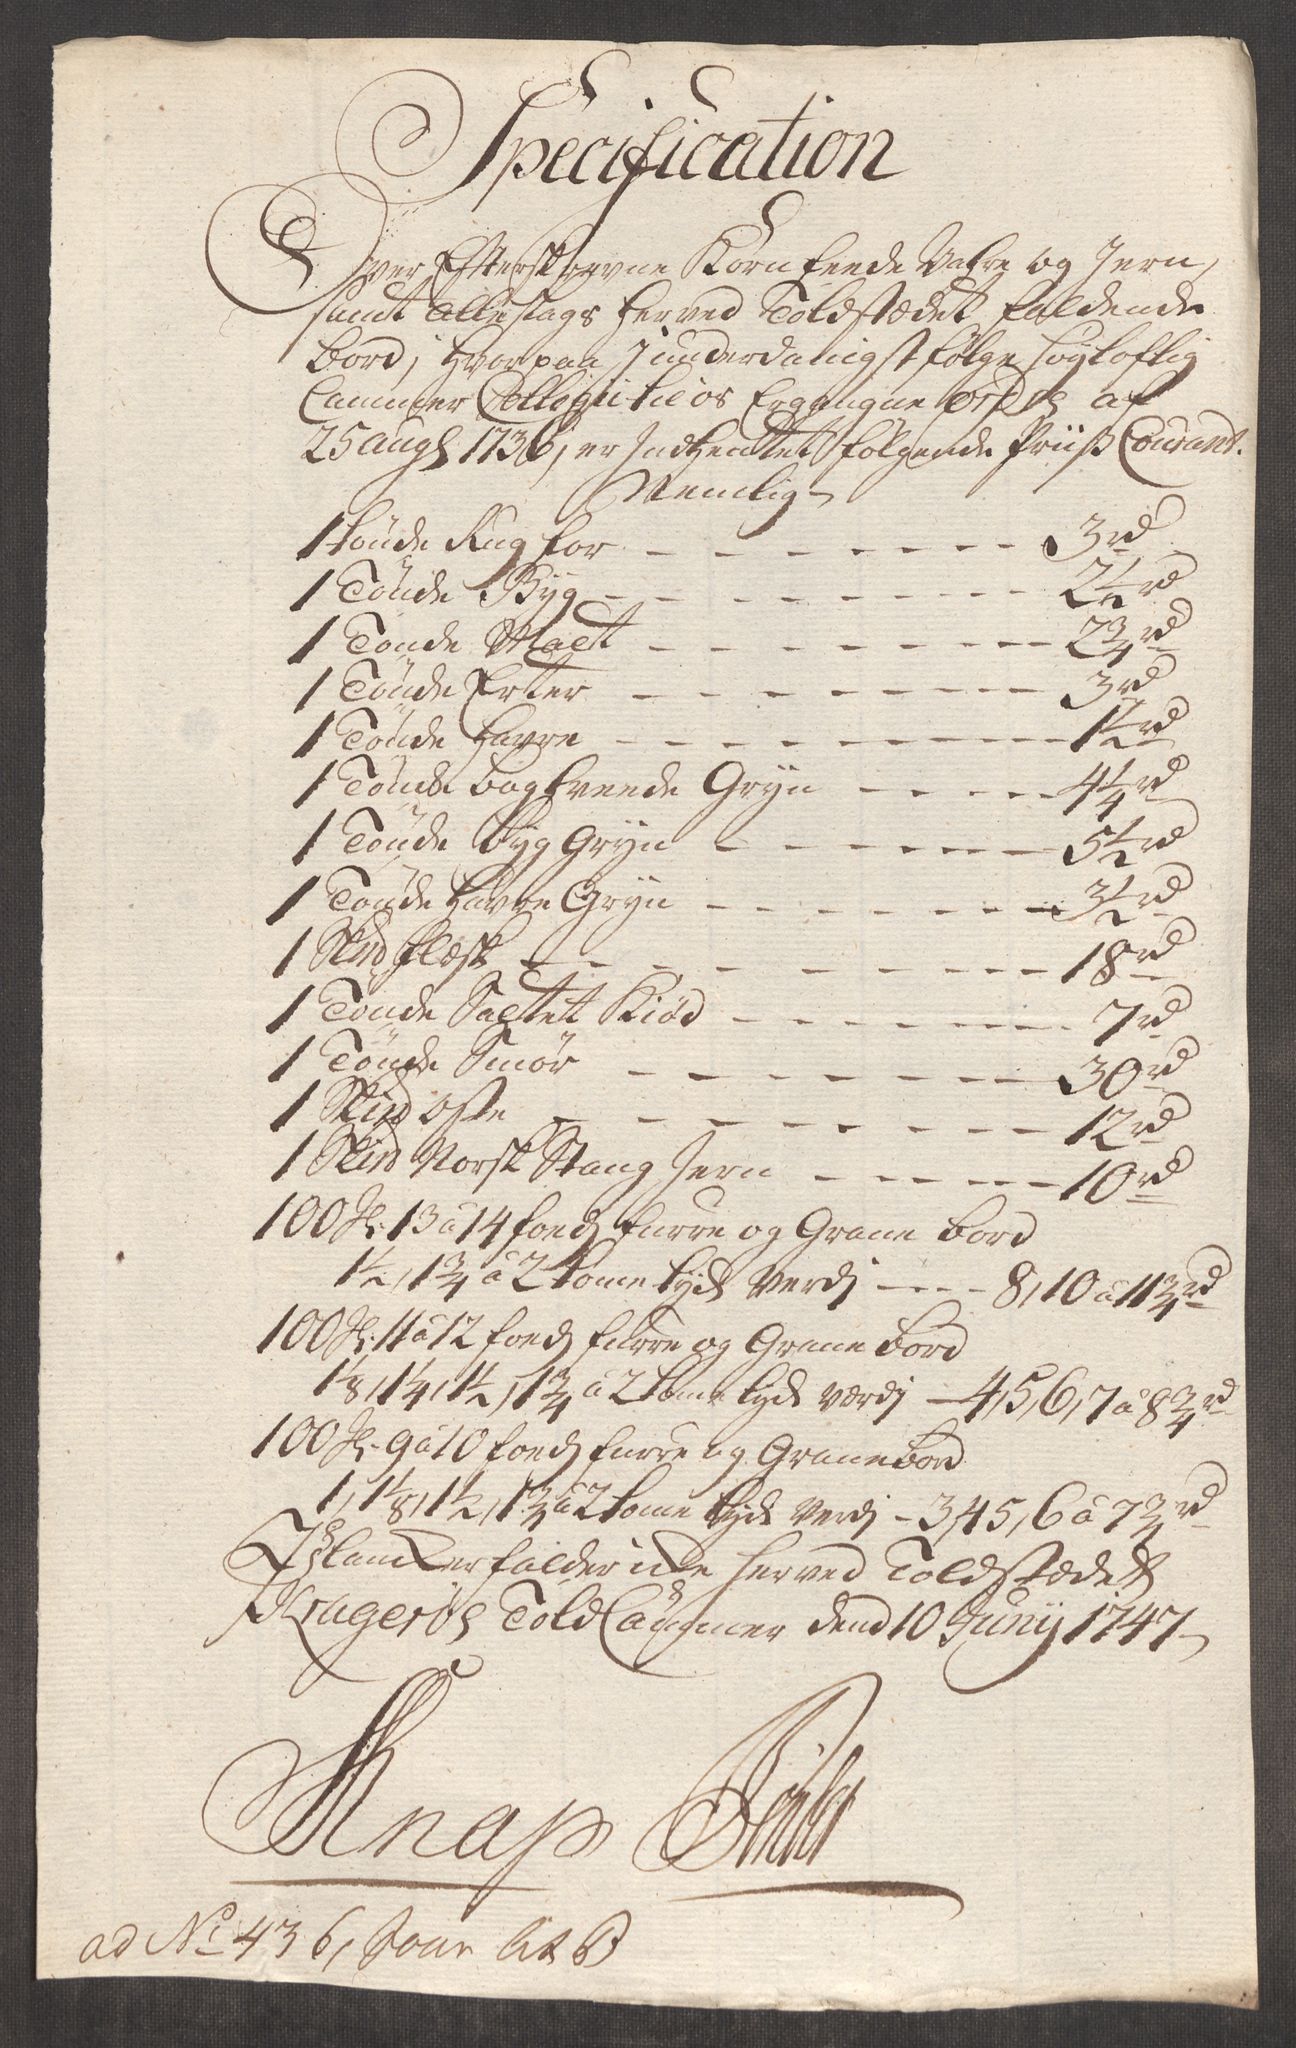 Specification
Over Efterskrevne Korn feede Vahre og Jern,
samt alleslags herved Toldstædet faldende
bord, hvorpaa J underdanigst følge høyloflig
Cammer Collegii til os Ergangne ordre af
25 Aug 1736, er Indhentet følgende Priiß Courant.
Nemlig
1 tønde Rug for - - - 3 rd
1 Tønde Byg - - - 2 1/2 rd
1 Tønde Malt - - - 2 3/4 rd
1 Tønde Erter - - - 3 rd
1 Tønde Havre - - - 1 1/2 rd
1 Tønde boghveede Gryn - - - 4 1/4 rd
1 Tønde byg Gryn - - - 5 1/2 rd
1 Tønde Havre Gryn - - - 3 1/2 rd
1 Skpd flesk - - - 18 rd
1 Tønde Saltet Kiød - - - 7 rd
1 Tønde Smør - - - 30 rd
1 Skpd oste - - - 12 rd
1 Skpd Norsk Stang Jern - - - 10 rd
100 st. 13 a 14 foeds furre og Grane bord
1 1/2, 1 3/4 a 2 tome tyck Verdj - - - 8, 10 a 11 3/4 rd
100 st. 11 a 12 foeds furre og Grane bord
1 1/8, 1 1/4, 1 1/2, 1 3/4 a 2 tome tyck værdj - 4, 5, 6, 7 a 8 3/4 rd
100 st. 9 a 10 foeds furre og Grane bord
1, 1 1/8, 1 1/2, 1 3/4 a 2 tome tyck Verdj - 3, 4, 5, 6 a 7 3/4 rd
falder icke herved Toldstædet
Kragerøe Told Cammer dend 10 Junij 1747
Knap
ad No 436, Jour lit B